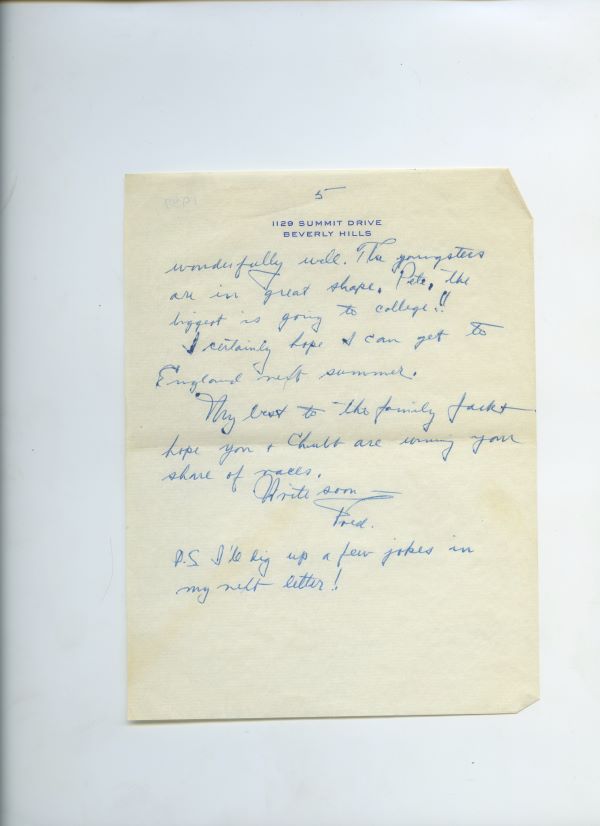 5
1129 SUMMIT DRIVE
BEVERLY HILLS
wonderfully well. The youngsters
are in great shape. Pete, the
biggest is going to college!!
I certainly hope I can get to
England next summer.
My best to the family Jack +
hope you + Chubb are winning your
share of races.
Write soon —
Fred.
P.S I'll dig up a few jokes in
my next letter!